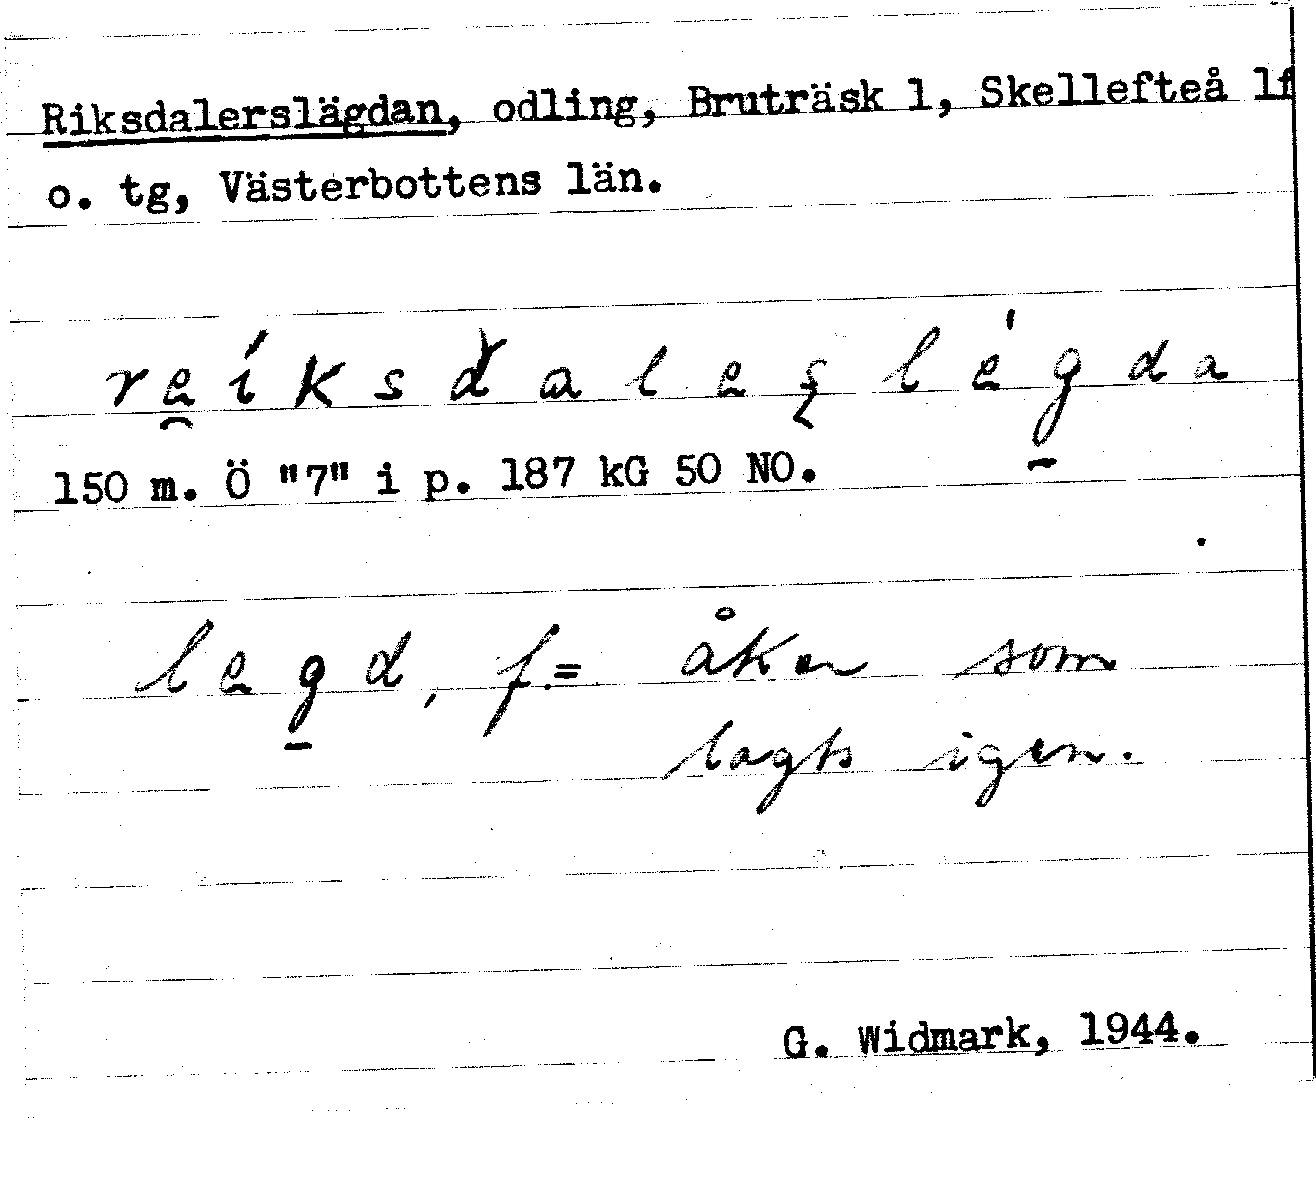 Riksdalerslägdan, odling, Bruträsk 1, Skellefteå lf
o. tg, Västerbottens län.
reíksdaleslégda
150 m. Ö "7" i p. 187 kG 50 NO.
legd, f.= åker som
lagts igen.
G. Widmark, 1944.